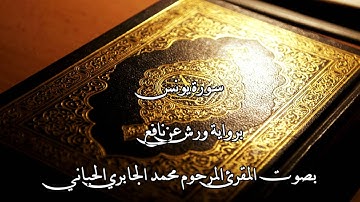 سورة يونس
برواية ورش عن نافع
بصوت المقرئ المرحوم محمد الجابري الحياني